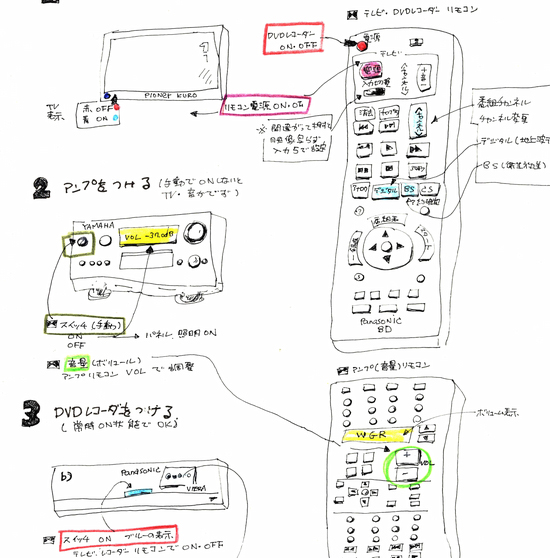 テレビ・DVDレコーダー リモコン
DVDレコーダー
ON・OFF
電源
テレビ
PIONEER KURO
TV
表示
赤 OFF
青 ON
リモコン電源 ON・OFF
※ 間違がって押すと
入力5で設定
番組チャンネル
チャンネル変更
デジタル(地上波デジ
BS(衛生放送)
デジタル
BS
CS
2 アンプをつける(手動でONしないと
TV・音がでず)
YAMAHA
VOL -37.0dB
スイッチ(手動)
ON
OFF
パネル 照明 ON
音量(ボリューム)
アンプリモコン VOL で調整
Panasonic
BD
アンプ(音量)リモコン
ボリューム表示
WGR
VOL
3 DVDレコーダをつける
(常時ON状態でOK)
b)
Panasonic
VIERA
スイッチ ON ブルーの表示
テレビ、レコーダー リモコンで ON・OFF